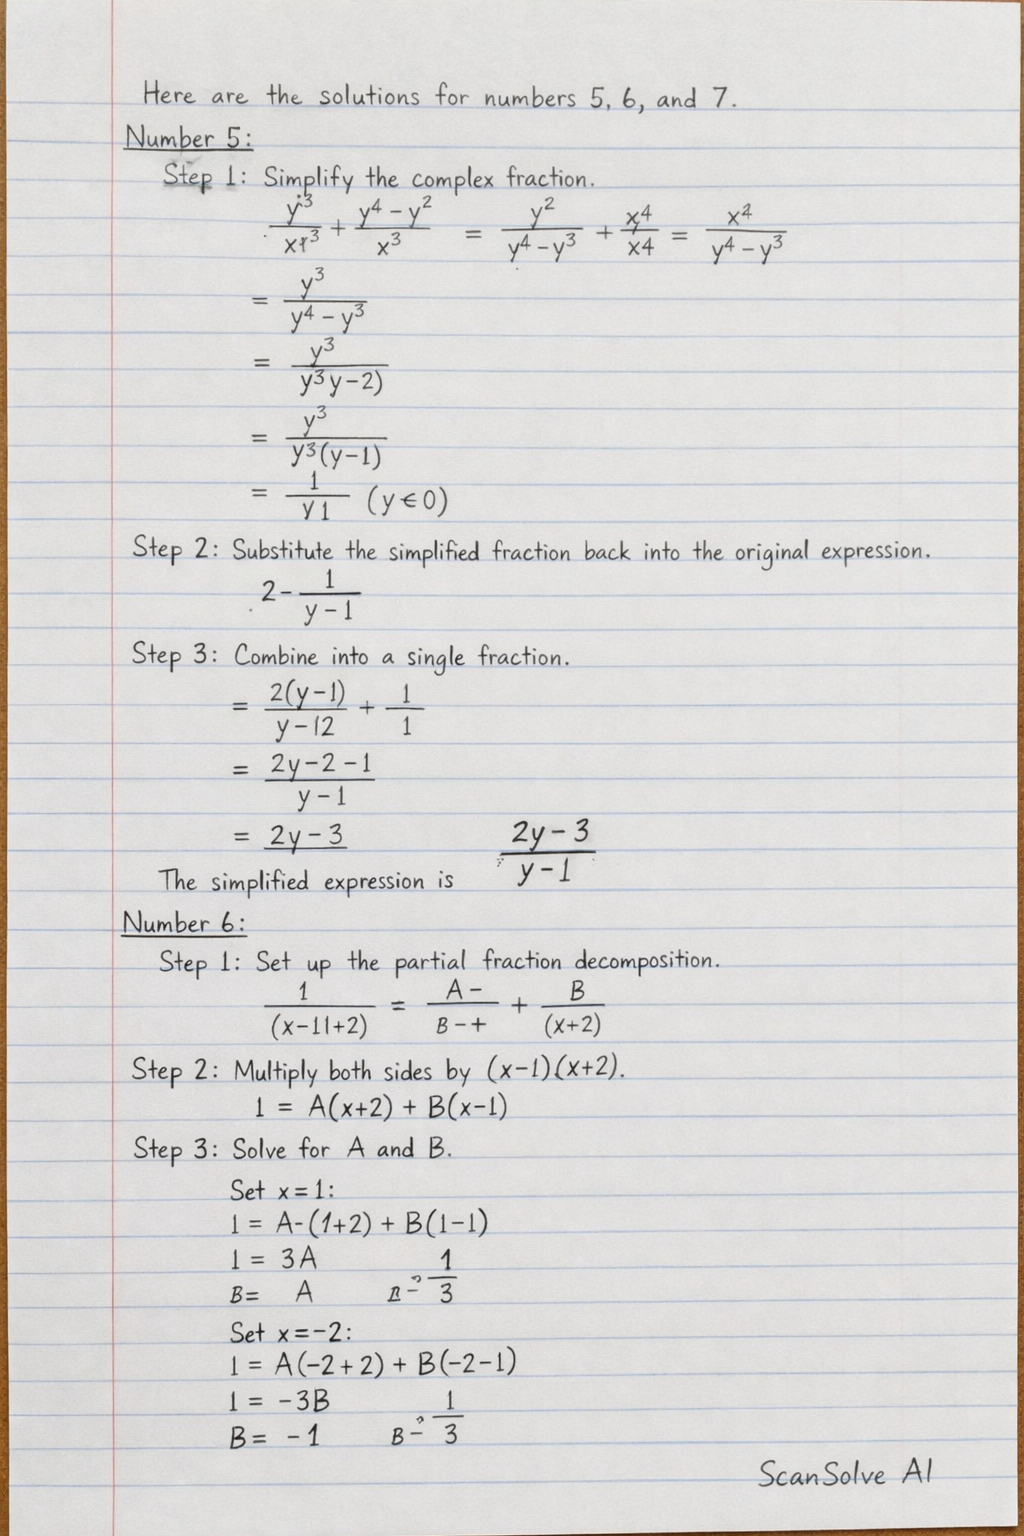 Here are the solutions for numbers 5, 6, and 7.
Number 5:
Step 1: Simplify the complex fraction.
y^3/x1^3 + (y^4 - y^2)/x^3 = y^2/(y^4 - y^3) + x^4/x4 = x^2/(y^4 - y^3)
= y^3/(y^4 - y^3)
= y^3/(y^3 y - 2))
= y^3/(y^3(y - 1))
= 1/(y 1) (y ∈ 0)
Step 2: Substitute the simplified fraction back into the original expression.
2 - 1/(y - 1)
Step 3: Combine into a single fraction.
= 2(y - 1)/(y - 12) + 1/1
= (2y - 2 - 1)/(y - 1)
= 2y - 3
The simplified expression is (2y - 3)/(y - 1)
Number 6:
Step 1: Set up the partial fraction decomposition.
1/(x-11+2) = (A -)/(B - +) + B/(x+2)
Step 2: Multiply both sides by (x-1)(x+2).
1 = A(x+2) + B(x-1)
Step 3: Solve for A and B.
Set x=1:
1 = A-(1+2) + B(1-1)
1 = 3A
B= A 1/3
Set x=-2:
1 = A(-2+2) + B(-2-1)
1 = -3B
B= -1 B 1/3
ScanSolve AI